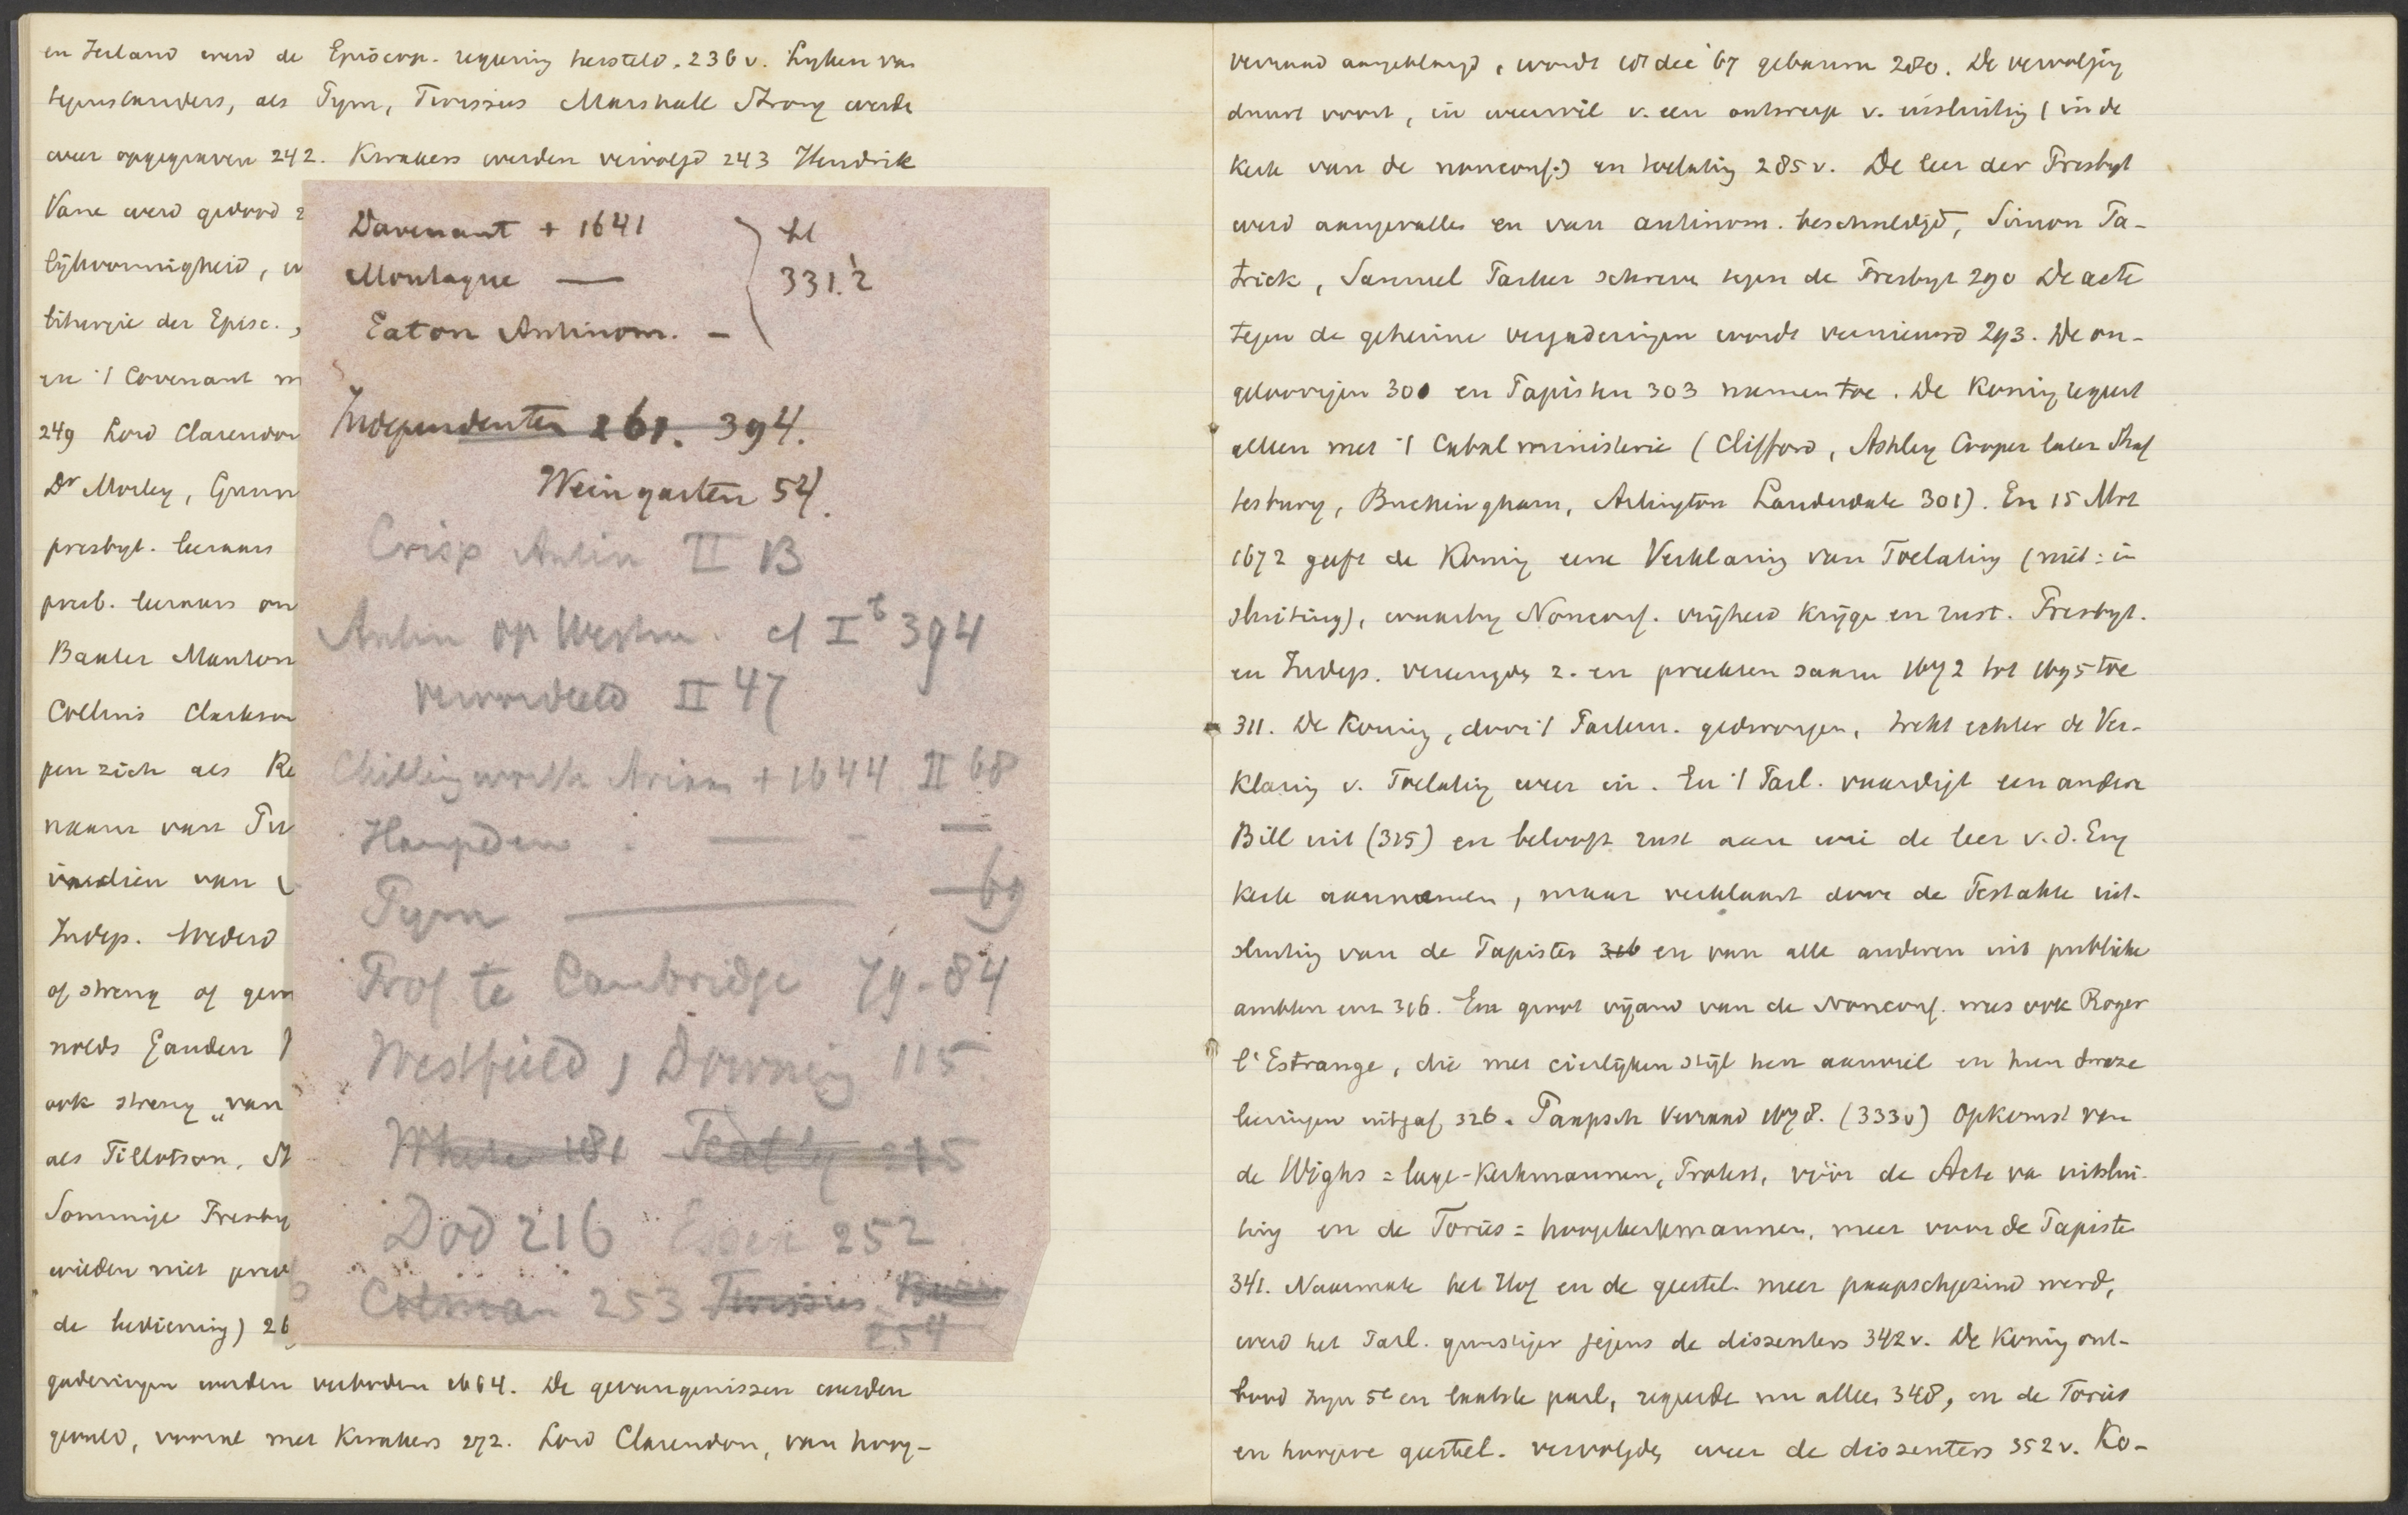 en Ierland werd de Episcop. regering hersteld. 236 v. Lyken van
tegenstanders, als Pym, Twissus Marshall Strong werden
weer opgegraven 242. Kwakers werden vervolgd 243 Hendrik
Vane werd gedood
lijkvormigheid,
liturgie der Episc.,
en 't Covenant
249 Lord Clarendon
Dr Morley,
presbyt. leeraars
presb. leeraars
Baxter Manton
Collins Clarkson
pen zich als
naam van
van
Indep.
of streng of
ook streng „van
als Tillotson,
Sommige Presby
wilden niet
de bediening)
gaderingen werden verboden 1664. De gevangenissen werden
gevuld, vooral met Kwakers 272. Lord Clarendon, van hoog-
Davenant + 1641
Montague —
331.2
Eaton Antinom. —
Independenten 261. 394.
Weingarten 54.
Crisp Antin II 13
Antin op Westm. cl I b 394
veroordeeld II 47
Chillingworth Arian + 1644 II 68
Hampden — —
Pym — 69
Prof te Cambridge 79-84
Westfield, Downing 115
White 181 Featly 215
Dod 216 Essex 252
Colman 253 Twissus
254
verraad aangeklaagd, wordt 18 dec '67 gebannen 280. De vervolging
duurt voort, in weerwil v. een ontwerp v. insluiting (in de
kerk van de nonconf.) en toelating 285 v. De leer der Presbyt
werd aangevallen en van antinom. beschuldigd, Simon Pa-
trick, Samuel Parker schreven tegen de Presbyt 290 De acte
tegen de geheime vergaderingen wordt vernieuwd 293. De on-
geloovigen 300 en Papisten 303 namen toe. De Koning regeert
alleen met 't Cabal ministerie (Clifford, Ashley Cooper later Shaf
tesbury, Buckingham, Arlington Lauderdale 301). En 15 Mrt
1672 geeft de Koning eene Verklaring van Toelating (niet: in
sluiting), waarby Nonconf. vrijheid krijgen en rust. Presbyt.
en Indep. vereenigden z. en preekten samen 1672 tot 1695 toe
311. De Koning, door 't Parlem. gedwongen, trekt echter de Ver-
klaring v. Toelating weer in. En 't Parl. vaardigt een andere
Bill uit (315) en belooft rust aan wie de leer v. d. Eng
Kerk aannemen, maar verklaart door de Testakte uit-
sluiting van de Papisten 316 en van alle anderen uit publieke
ambten enz 316. Een groot vijand van de Nonconf. was ook Roger
l'Estrange, die met cierlijken stijl hen aanviel en hun dwaze
leeringen uitgaf, 326. Paapsch Verraad 1678. (333 v) Opkomst van
de Wighs = lage-Kerkmannen, Protest, vóór de Acte van uitslui-
ting en de Toriis = hoogekerkmannen, meer voor de Papisten
341. Naarmate het Hof en de geestel. meer paapschgezind werd,
werd het Parl. gunstiger jegens de dissenters 342 v. De Koning ont-
bond zyn 5e en laatste parl, regeerde nu alleen 348, en de Toriis
en hoogere geestel. vervolgden weer de dissenters 352 v. Ko-